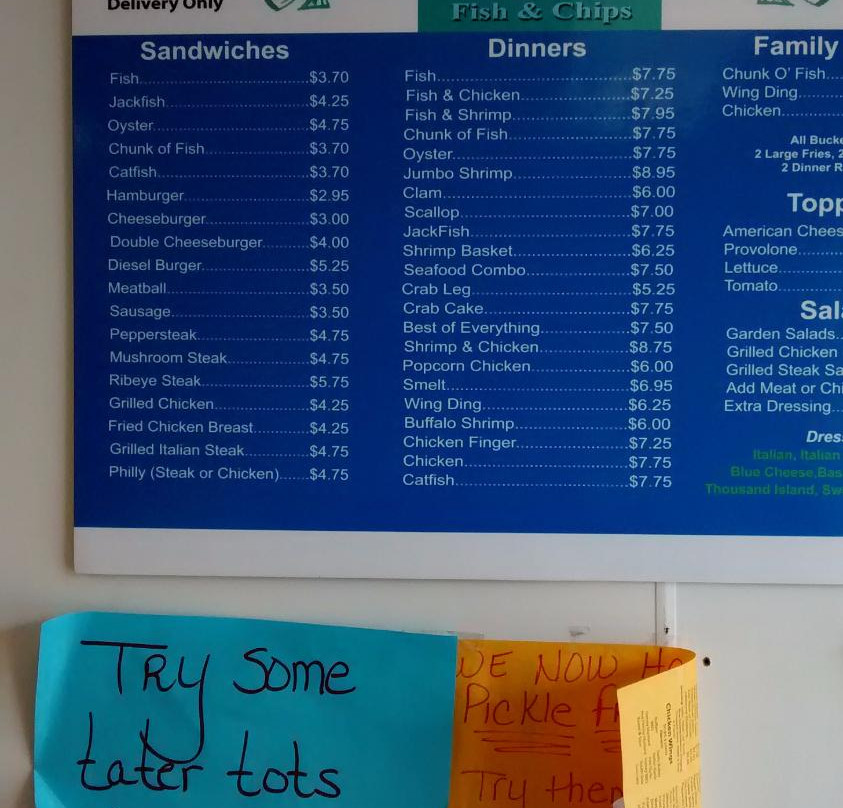 Delivery Only
Fish & Chips
Sandwiches
Fish $3.70
Jackfish $4.25
Oyster $4.75
Chunk of Fish $3.70
Catfish $3.70
Hamburger $2.95
Cheeseburger $3.00
Double Cheeseburger $4.00
Diesel Burger $5.25
Meatball $3.50
Sausage $3.50
Peppersteak $4.75
Mushroom Steak $4.75
Ribeye Steak $5.75
Grilled Chicken $4.25
Fried Chicken Breast $4.25
Grilled Italian Steak $4.75
Philly (Steak or Chicken) $4.75
Dinners
Fish $7.75
Fish & Chicken $7.25
Fish & Shrimp $7.95
Chunk of Fish $7.75
Oyster $7.75
Jumbo Shrimp $8.95
Clam $6.00
Scallop $7.00
JackFish $7.75
Shrimp Basket $6.25
Seafood Combo $7.50
Crab Leg $5.25
Crab Cake $7.75
Best of Everything $7.50
Shrimp & Chicken $8.75
Popcorn Chicken $6.00
Smelt $6.95
Wing Ding $6.25
Buffalo Shrimp $6.00
Chicken Finger $7.25
Chicken $7.75
Catfish $7.75
Family
Chunk O' Fish
Wing Ding
Chicken
All Bucke
2 Large Fries, 2
2 Dinner R
Topp
American Chees
Provolone
Lettuce
Tomato
Sal
Garden Salads
Grilled Chicken
Grilled Steak Sa
Add Meat or Chi
Extra Dressing
Dres
Italian, Italian
Blue Cheese, Bas
Thousand Island, Sw
Try Some
tater tots
WE NOW Ha
Pickle fr
Try then
Chicken Wings